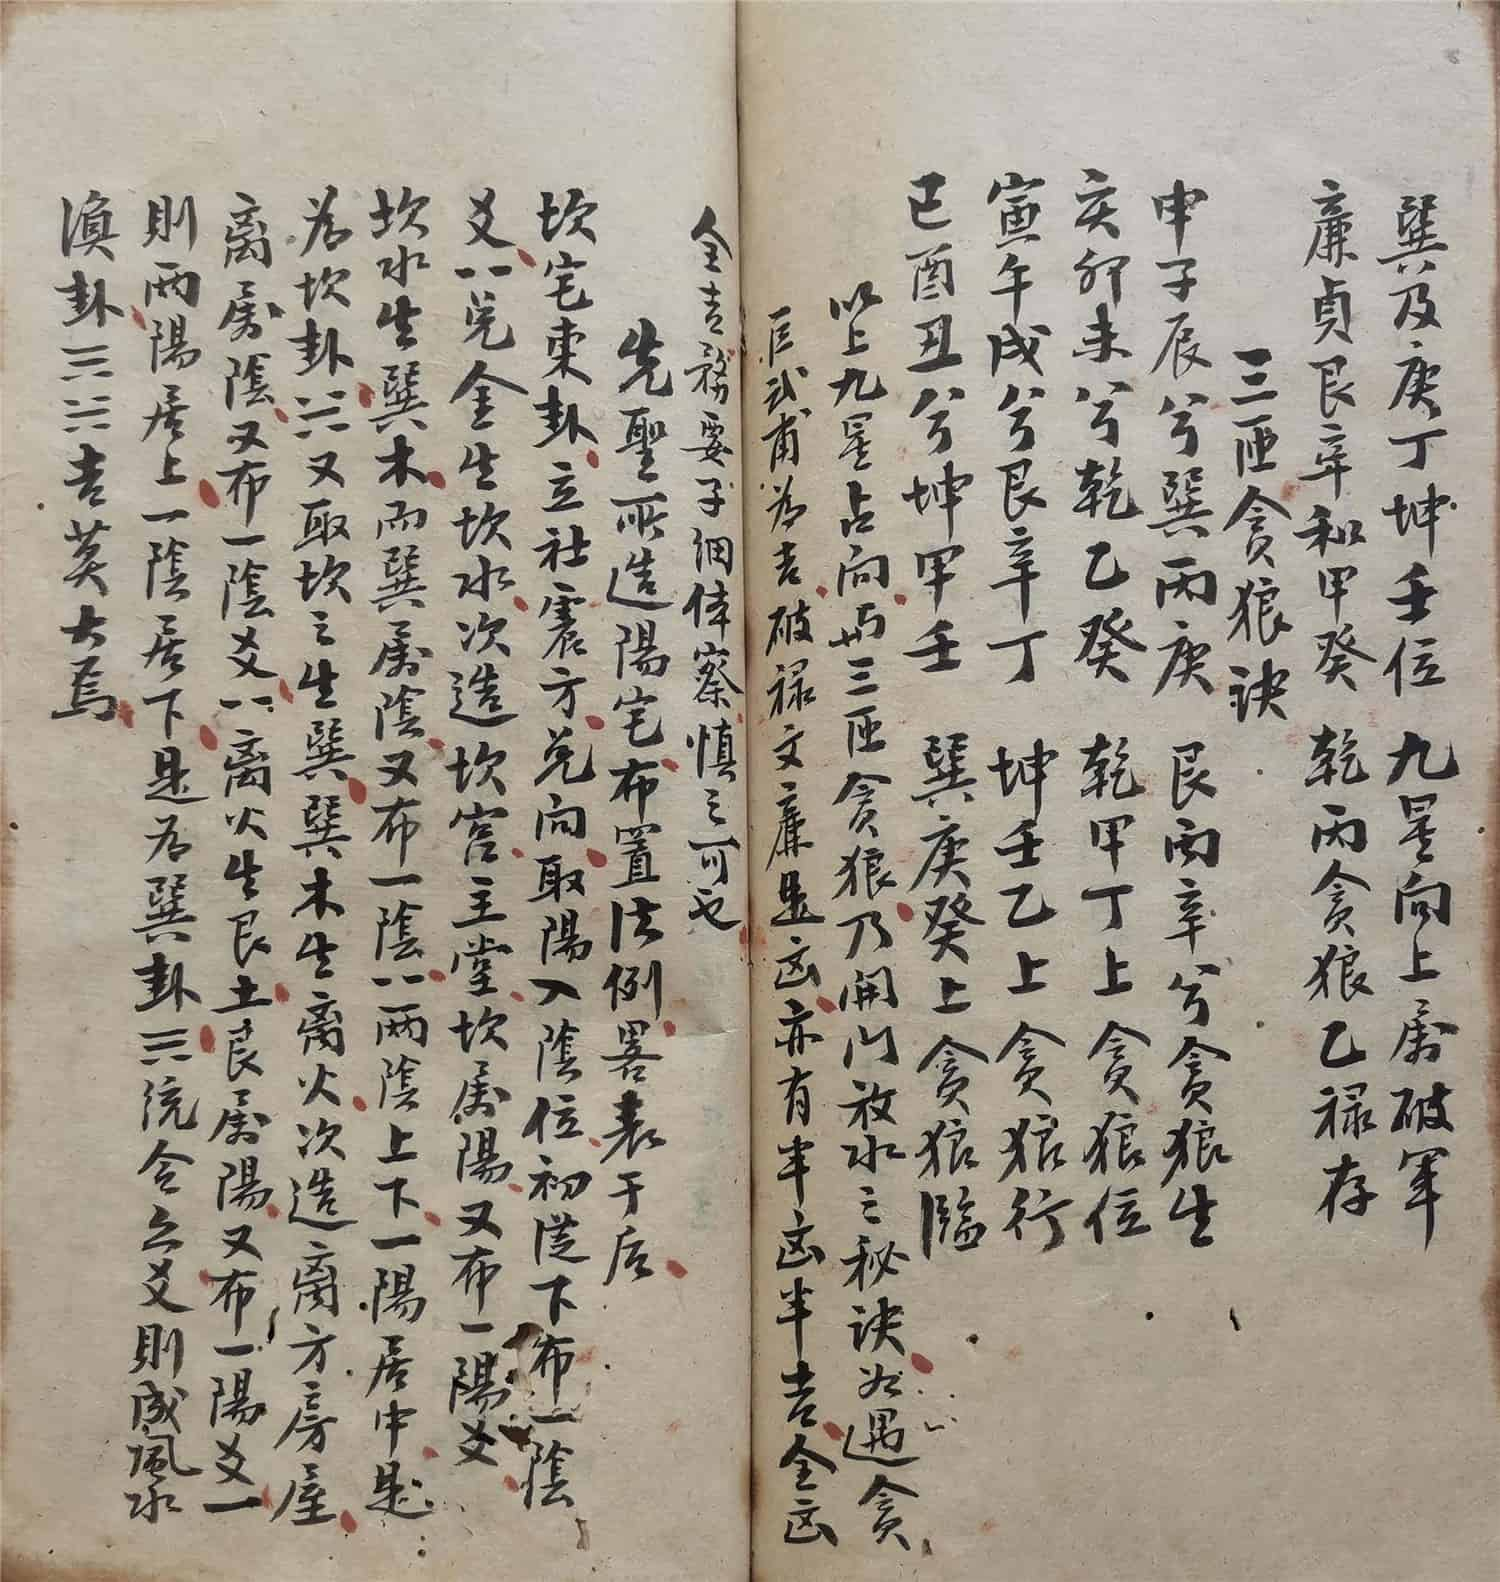 巽及庚丁坤壬位 九星向上属破军
廉貞艮辛和甲癸 乾丙贪狼乙禄存
三匝贪狼訣
申子辰兮巽丙庚 艮丙辛兮贪狼生
亥卯未兮乾乙癸 乾甲丁上贪狼位
寅午戌兮艮辛丁 坤壬乙上贪狼行
巳酉丑兮坤甲壬 巽庚癸上贪狼臨
以上九星占向与三匝贪狼乃開门放水之秘訣如遇贪
巨武甫为吉破禄文廉是凶亦有半凶半吉全凶
全吉務要子细体察慎之可也
先聖所造陽宅布置法例畧表于后
坎宅東卦立社震方兑向取陽入陰位初從下布一陰
爻⚋兑金生坎水次造坎宫主堂坎属陽又布一陽爻
坎水生巽木而巽属陰又布一陰⚋两陰上下一陽居中是
为坎卦☵又取坎之生巽巽木生离火次造离方房屋
离属陰又布一陰爻⚋离火生艮土艮属陽又布一陽爻一
則两陽居上一陰居下是为巽卦☴统合六爻則成風水
渙卦☴☵吉莫大焉